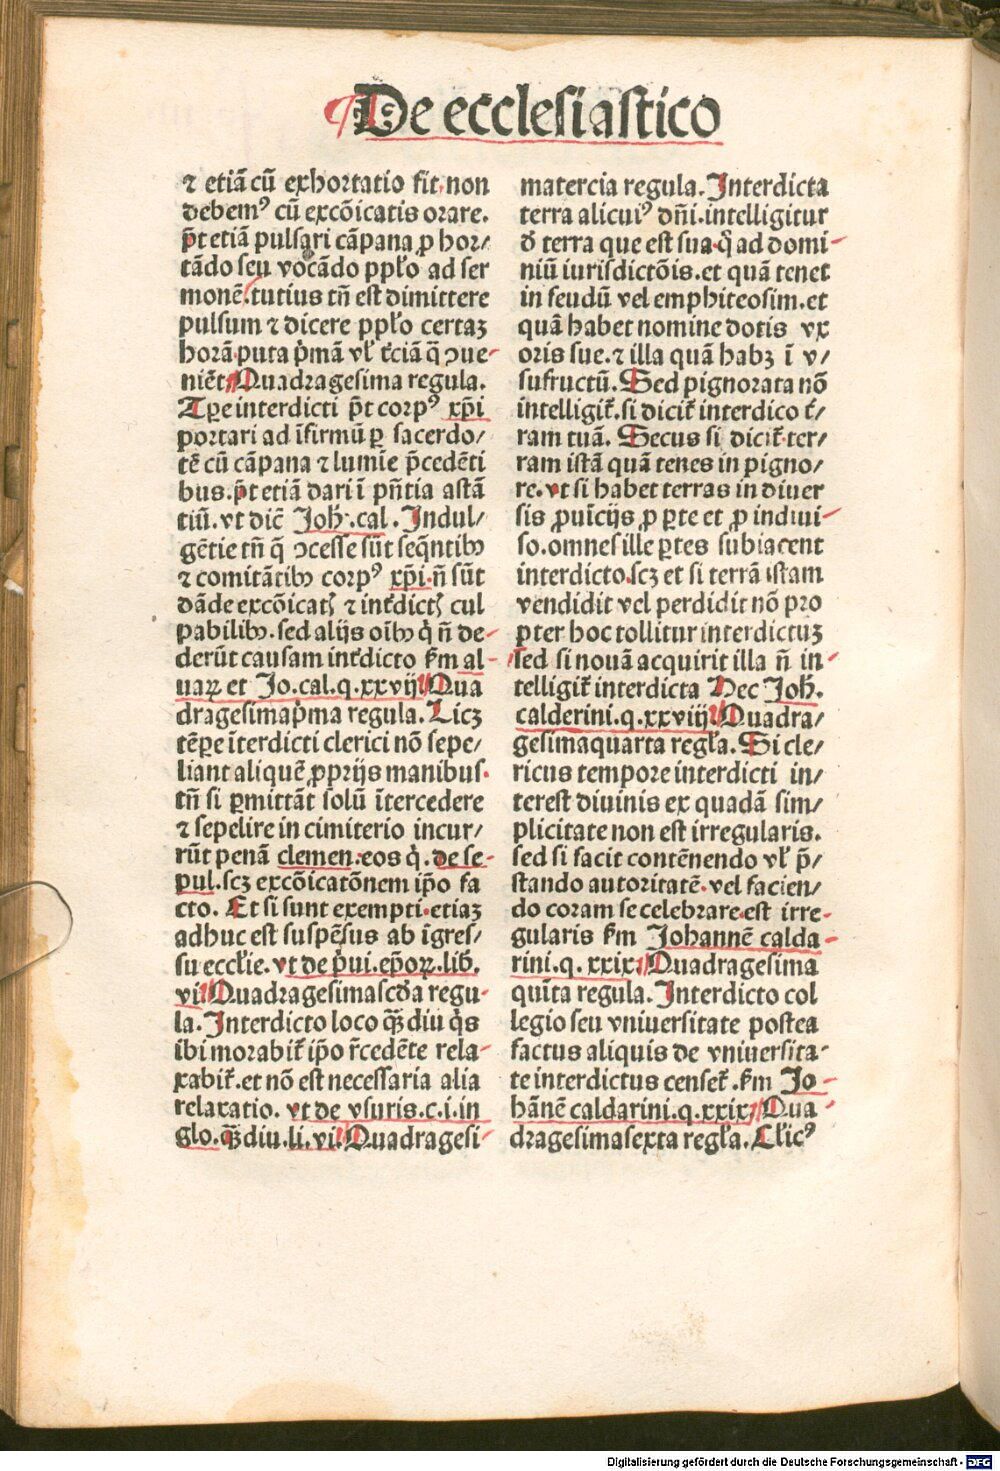 De ecclesiastico
⁊ etiã cũ exhortatio fit.non
debemꝰ cũ excõicatis orare.
p̃t etiã pulsari cãpana ꝓ hor/
tãdo seu vocãdo ppl̃o ad ser
monẽ.tutius tñ est dimittere
pulsum ⁊ dicere ppl̃o certaʒ
horã.puta p̃mã vl̃ t̃ciã q̃ ↄue
niẽt Quadragesima regula.
Tꝑe interdicti p̃t corpꝰ xp̃i
portari ad ĩfirmũ ꝑ sacerdo/
tẽ cũ cãpana ⁊ lumĩe p̃cedẽti
bus.p̃t etiã dari ĩ pñtia astã
tiũ.vt dic̃ Joh̃.cal.Indul/
gẽtie tñ q̃ ↄcesse sũt seq̃ntibꝫ
⁊ comitãtibꝫ corpꝰ xp̃i.ñ sũt
dãde excõicatꝭ ⁊ int̃dictꝭ cul
pabilibꝫ.sed alijs oĩbꝫ q̃ ñ de
derũt causam int̃dicto ẜm al
uaꝝ et Jo.cal.q.xxvij Qua
dragesimap̃ma regula.Licʒ
tẽꝑe ĩterdicti clerici nõ sepe/
liant aliquẽ ꝓprijs manibus.
tñ si ꝑmittãt solũ ĩtercedere
⁊ sepelire in cimiterio incur/
rũt penã clemen.eos q̃.de se
pul.scʒ excõicatõnem ip̃o fa
cto. Et si sunt exempti.etiaʒ
adhuc est suspẽsus ab ĩgres/
su eccl̃ie.vt de p̃ui.ep̃oꝝ.lib̃.
vi Quadragesimascd̃a regu
la.Interdicto loco q̃ʒ diu q̃s
ibi morabit̃ ip̃o r̃cedẽte rela
xabit̃.et nõ est necessaria alia
relaxatio. vt de vsuris.c.i.in
glo.q̃ʒdiu.li.vi.Quadragesi
matercia regula.Interdicta
terra alicuiꝰ dñi.intelligitur
d̃ terra que est sua.q̃ ad domi
niũ iurisdictõis.et quã tenet
in feudũ vel emphiteosim.et
quã habet nomine dotis vx
oris sue.⁊ illa quã habʒ ĩ v/
sufructũ.Sed pignorata nõ
intelligit̃.si dicit̃ interdico t̃/
ram tuã. Secus si dicit̃.ter/
ram istã quã tenes in pigno/
re.vt si habet terras in diuer
sis ꝓuĩcijs ꝓ ꝑte et ꝓ indiui
so.omnes ille ꝑtes subiacent
interdicto.scʒ et si terrã istam
vendidit vel perdidit nõ pro
pter hoc tollitur interdictuʒ
sed si nouã acquirit illa ñ in
telligit̃ interdicta Nec Joh̃.
calderini.q.xxviij Quadra/
gesimaquarta regl̃a.Si cle/
ricus tempore interdicti in/
terest diuinis ex quadã sim/
plicitate non est irregularis.
sed si facit contẽnendo vl̃ p̃/
stando autoritatẽ.vel facien/
do coram se celebrare.est irre
gularis ẜm Johannẽ calda
rini.q.xxix Quadragesima
quĩta regula.Interdicto col
legio seu vniuersitate postea
factus aliquis de vniuersita
te interdictus censet̃.ẜm Jo
hãnẽ caldarini.q.xxix Qua
dragesimasexta regl̃a.Cl̃icꝰ
Digitalisierung gefördert durch die Deutsche Forschungsgemeinschaft - DFG